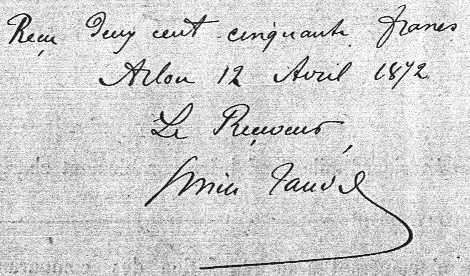 Reçu Deux cent cinquante francs
Arlon 12 Avril 1872
Le Receveur,